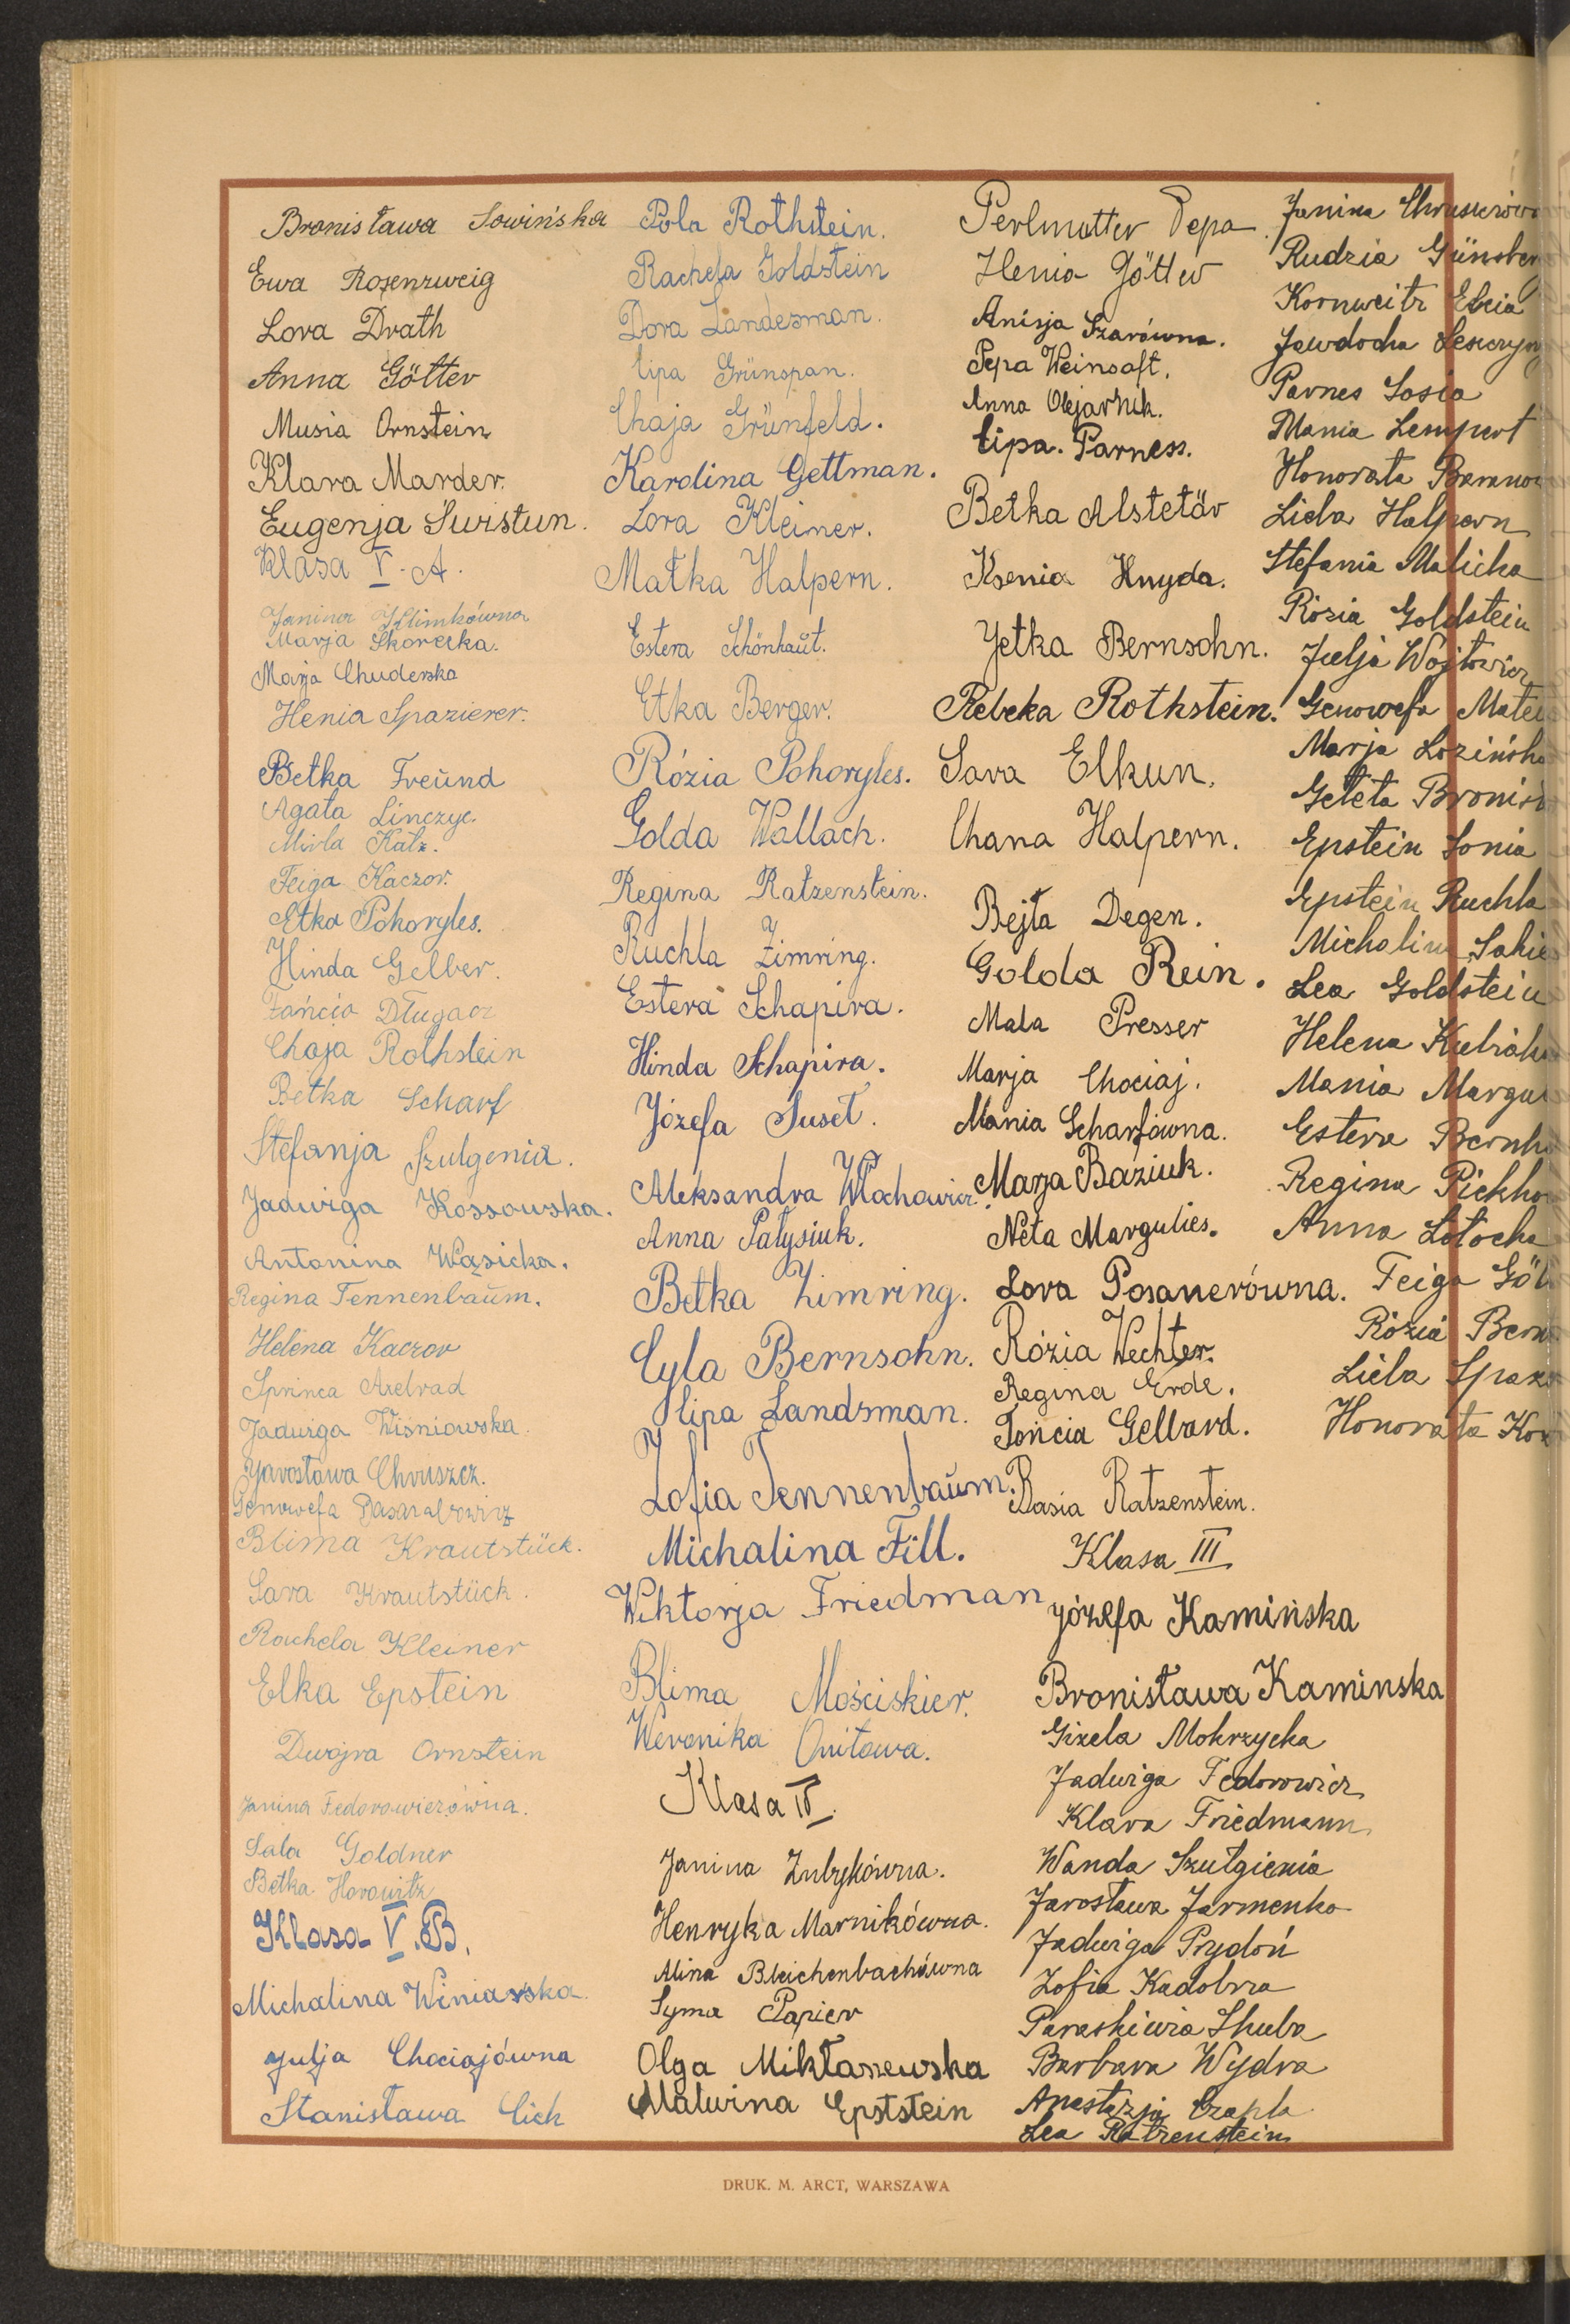 Bronisława Sowińska
Ewa Rosenzweig
Lora Drath
Anna Götter
Musia Ornstein
Klara Marder.
Eugenja Surstun.
Klasa V. A.
Janina Klimkówna
Marja Skorecka.
Marja Chuderska
Henia Spazierer.
Betka Freünd
Agata Linczyc.
Mirla Katz.
Feiga Kaczor.
Etka Pohoryles.
Hinda Gelber.
Fańcia Długacz
Chaja Rothstein
Betka Scharf
Stefanja Szulgenia.
Jadwiga Kossowska.
Antonina Wąsicka.
Regina Tennenbaüm.
Helena Kaczor
Sprinca Axelrad
Jadwiga Wiśniowska.
Jarosława Chruszcz.
Genowefa
Blima Krautstück.
Sara Krautstück.
Rachela Kleiner
Elka Epstein
Dwojra Ornstein
Janina Fedorowiczówna.
Sala Goldner
Betka Horowitz
Klasa V. B.
Michalina Winiarska.
Julja Chociajówna
Stanisława Cich
Pola Rothstein.
Rachela Goldstein
Dora Landesman.
Lipa Grünspan.
Chaja Grünfeld.
Karolina Gettman.
Lora Kleiner.
Matka Halpern.
Estera Schönhaüt.
Etka Berger.
Rózia Pohoryles.
Golda Wallach.
Regina Ratzenstein.
Ruchla Zimring.
Estera Schapira.
Hinda Schapira.
Józefa Suset.
Aleksandra Włochowicz.
Anna Patysiuk.
Betka Zimring.
Cyla Bernsohn.
Lipa Landsman.
Zofia Tennenbaüm.
Michalina Fill.
Wiktorja Friedman
Blima Mościskier.
Weronika Onitowa.
Klasa IV.
Janina Zubrykówna.
Henryka Marnikówna.
Alina Bleichenbachówna
Syma Papier
Olga Mikłaszewska
Malwina Epststein
Perlmutter Pepa.
Henia Götter
Anisja Szarówna.
Pepa Weinsaft.
Anna Olejarnik.
Lipa. Parness.
Betka Alstetär
Ksenia Hnyda.
Jetka Bernsohn.
Rebeka Rothstein.
Sara Elkun.
Chana Halpern.
Bejta Degen.
Golda Rein.
Mala Presser
Marja Chociaj.
Mania Scharfówna.
Marja Baziuk.
Neta Margulies.
Lora Posanerówna.
Rózia Wechter.
Regina Erde.
Tońcia Gelbard.
Basia Ratzenstein.
Klasa III
Józefa Kamińska
Bronisława Kaminska
Gizela Mokrzycka
Jadwiga Fedorowicz
Klara Friedmann
Wanda Szulgienia
Jarosława Jarmenko
Jadwiga Prydoń
Zofia Kadobra
Paraskiewia Shuba
Barbara Wydra
Anastazja Czapla
Lea Ratzenstein
Janina
Rudzia Günsber
Kornweitz Elcia
Jawdocha Leszczyn
Parnes Sosia
Mania Lempert
Honorata
Lieba Halpern
Stefania Malicka
Rózia Goldstein
Julja Wojtowicz
Genowefa
Marja Lozińska
Geteta
Epstein Sonia
Epstein Ruchla
Michalina
Lea Goldstein
Helena
Mania Margu
Estera
Regina
Anna Lotocka
Feiga Göt
Rózia
Lieba
Honorata
DRUK. M. ARCT, WARSZAWA